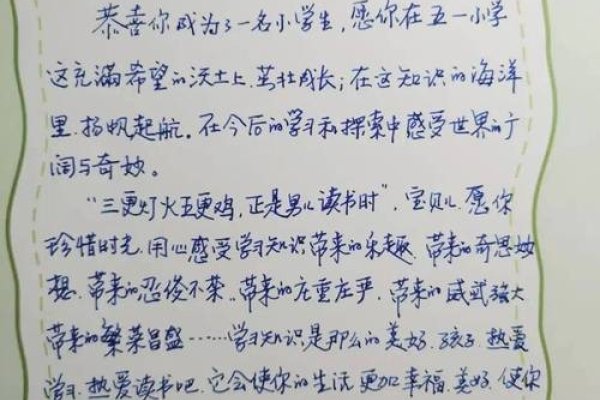 恭喜你成为了一名小学生，愿你在五一小学
这充满希望的沃土上茁壮成长；在这知识的海洋
里扬帆起航。在今后的学习和探索中感受世界的广
阔与奇妙。
“三更灯火五更鸡，正是男儿读书时”，宝贝儿愿你
珍惜时光，用心感受学习知识带来的乐趣，带来的奇思妙
想，带来的忍俊不禁，带来的庄重庄严，带来的威武强大
带来的繁荣昌盛……学习知识是那么的美好，孩子，热爱
学习，热爱读书吧，它会使你的生活更加幸福、美好，使你